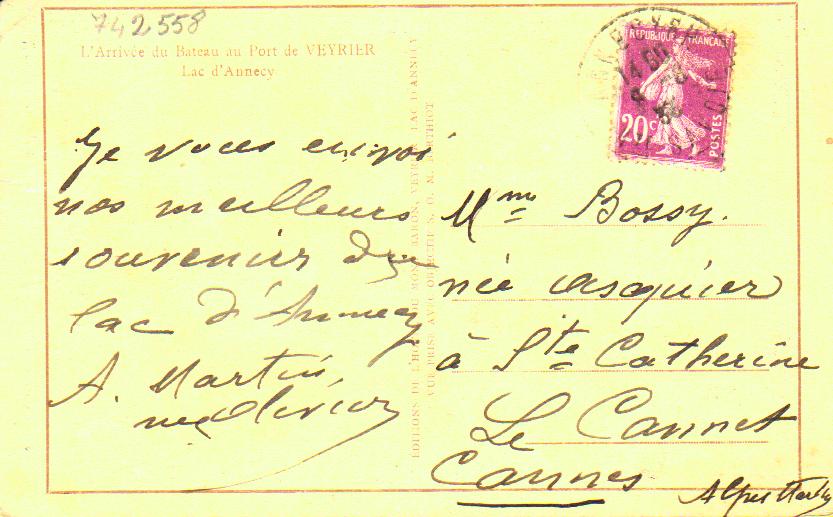 742558
L'Arrivée du Bateau au Port de VEYRIER
Lac d'Annecy
REPUBLIQUE FRANÇAISE
20c
POSTES
Je vous envoi
nos meilleurs
souvenirs du
lac d'Annecy
A. Martin
née Olivier
Mme Bossy.
née Asquier
à Ste Catherine
Le Cannet
Cannes
Alpes Mar
EDITIONS DE L'HOTEL MONT-BARON, VEYRIER, LAC D'ANNECY
VUE PRISE AVEC OBJECTIF S. O. M. BERTHIOT